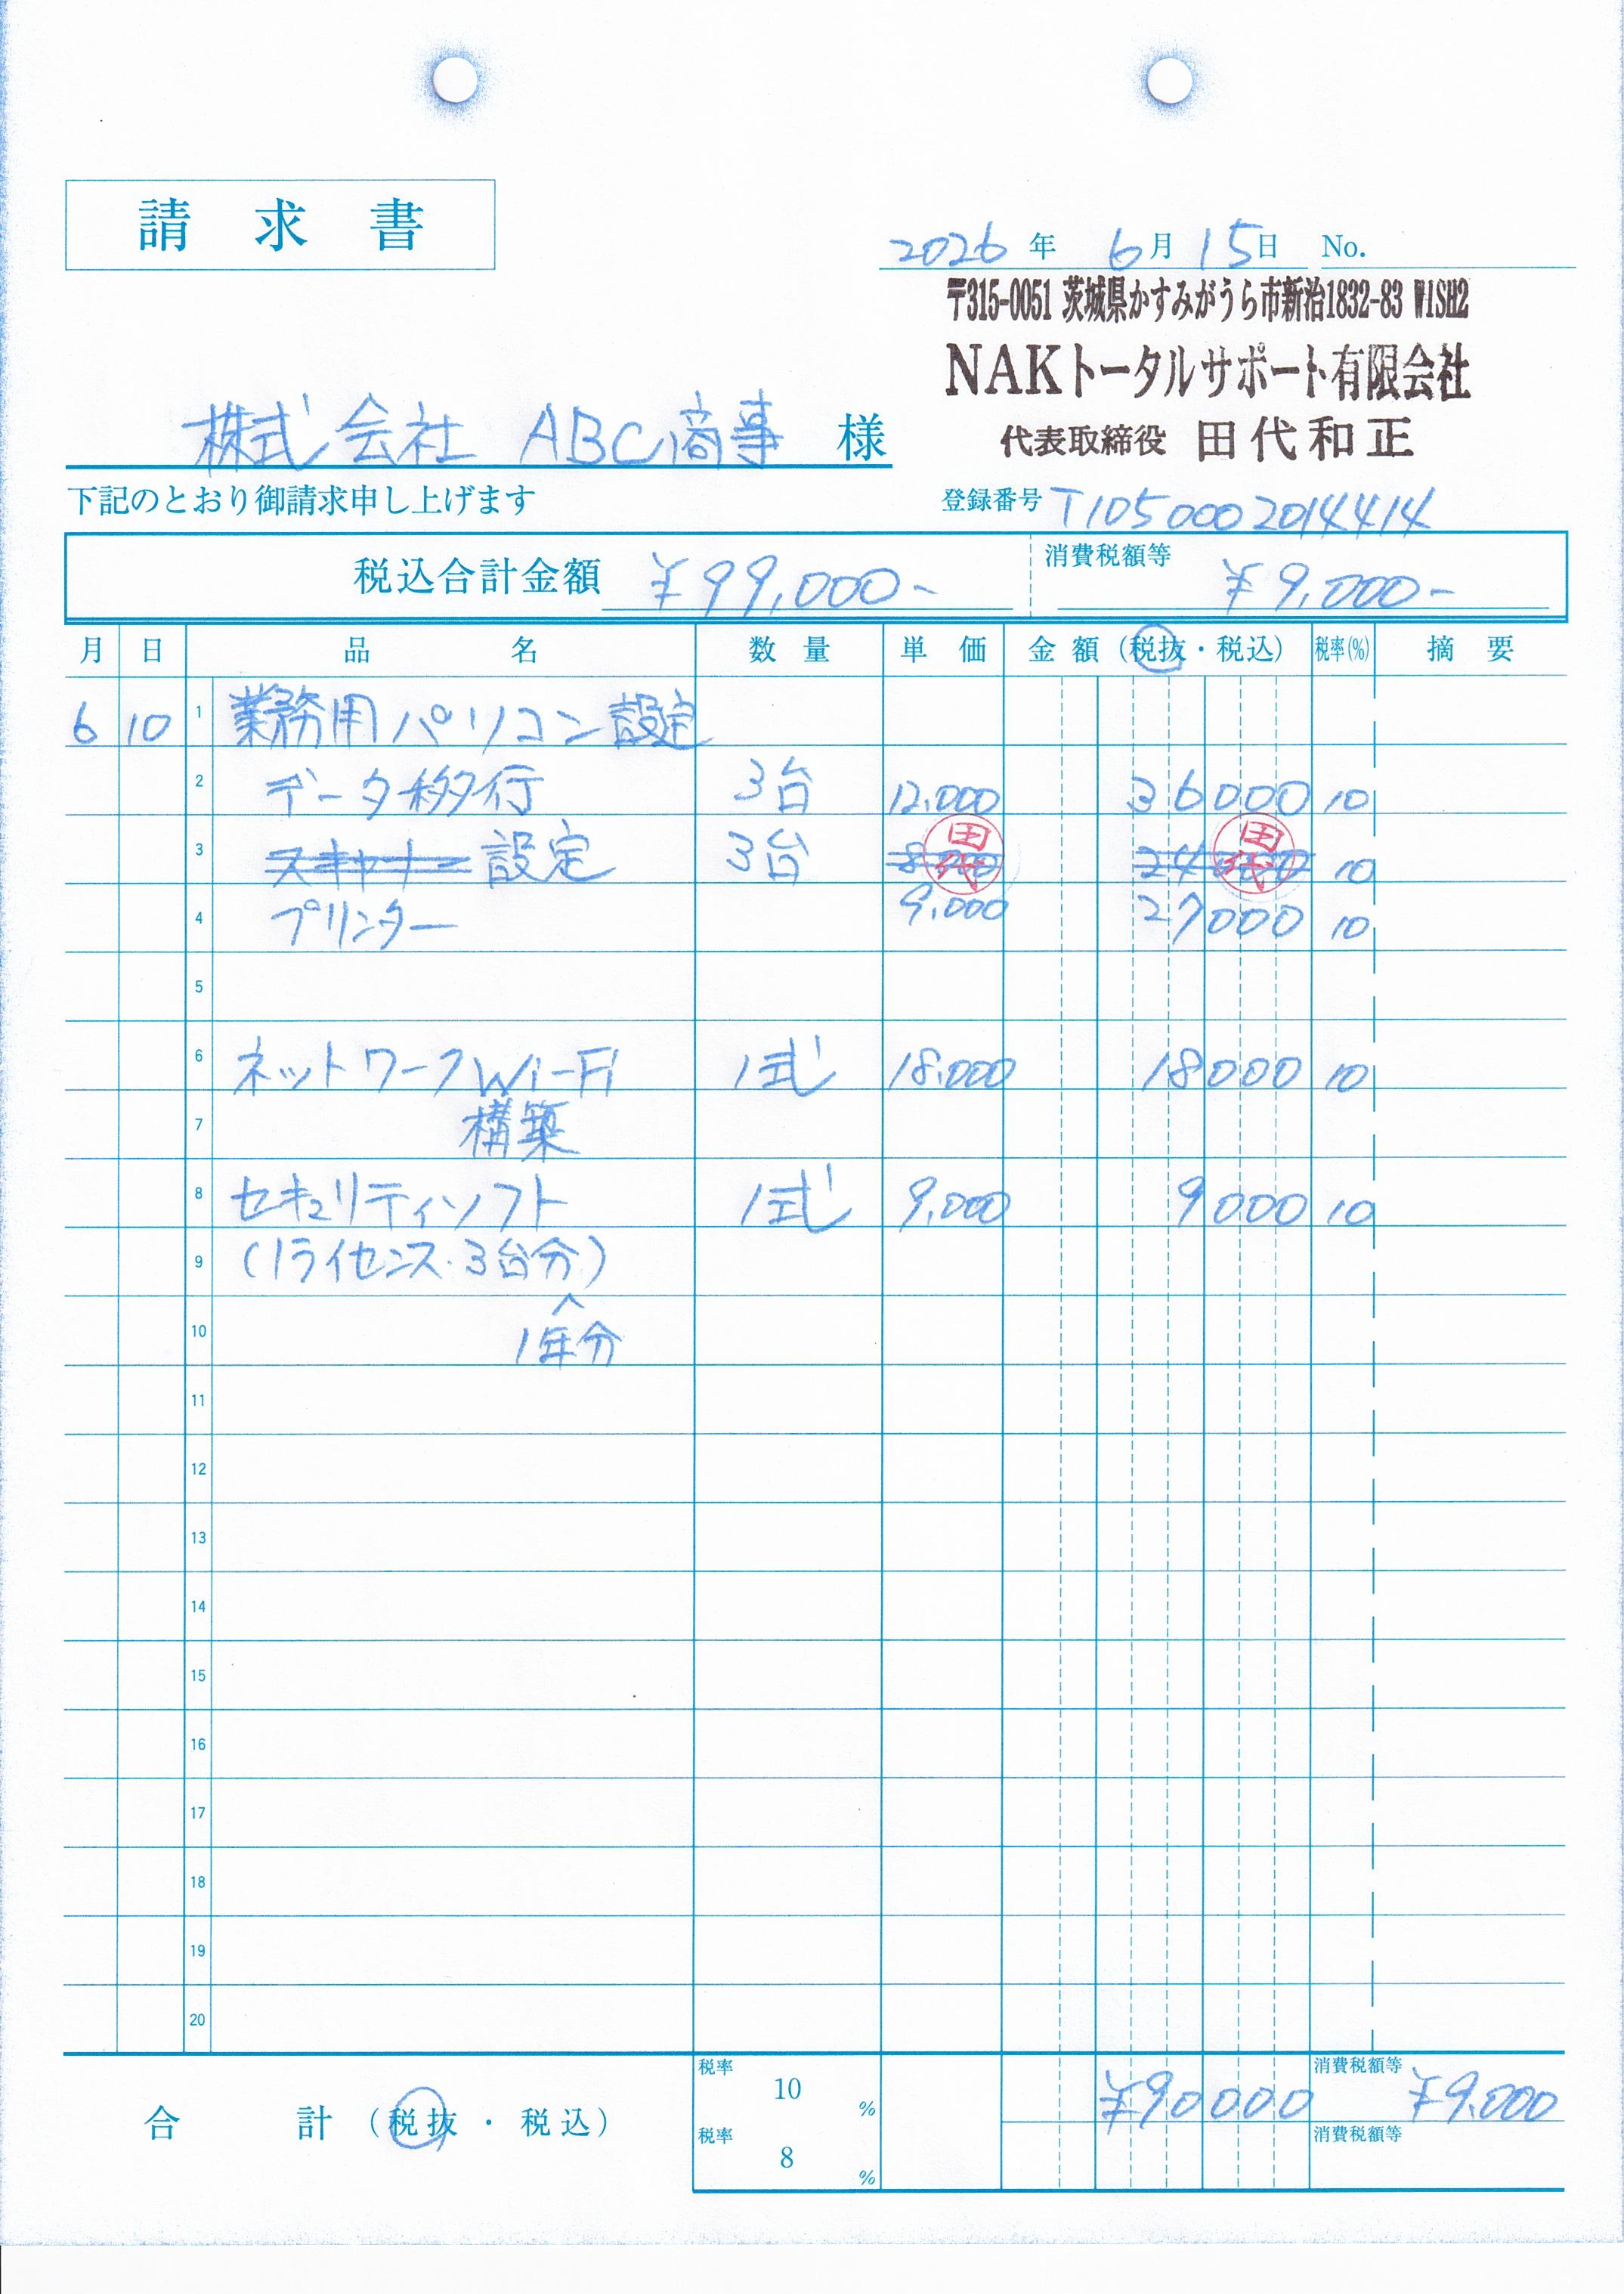 請求書
2026年 6月 15日 No.
〒315-0051 茨城県かすみがうら市新治1832-83 WISH2
NAKトータルサポート有限会社
代表取締役 田代和正
株式会社 ABC商事 様
下記のとおり御請求申し上げます
登録番号 T1050002014414
税込合計金額 ¥99,000- 消費税額等 ¥9,000-
月 日 品名 数量 単価 金額(税抜・税込) 税率(%) 摘要
6 10 1 業務用パソコン設定
2 データ移行 3台 12,000 36000 10
3 スキャナー 設定 3台 8,000 田代 24000 田代 10
4 プリンター 9,000 27000 10
5
6 ネットワークWi-Fi 1式 18,000 18000 10
7 構築
8 セキュリティソフト 1式 9,000 9000 10
9 (1ライセンス・3台分)
10 1年分
11
12
13
14
15
16
17
18
19
20
合計(税抜・税込) 税率 10% ¥90000 消費税額等 ¥9,000
税率 8% 消費税額等